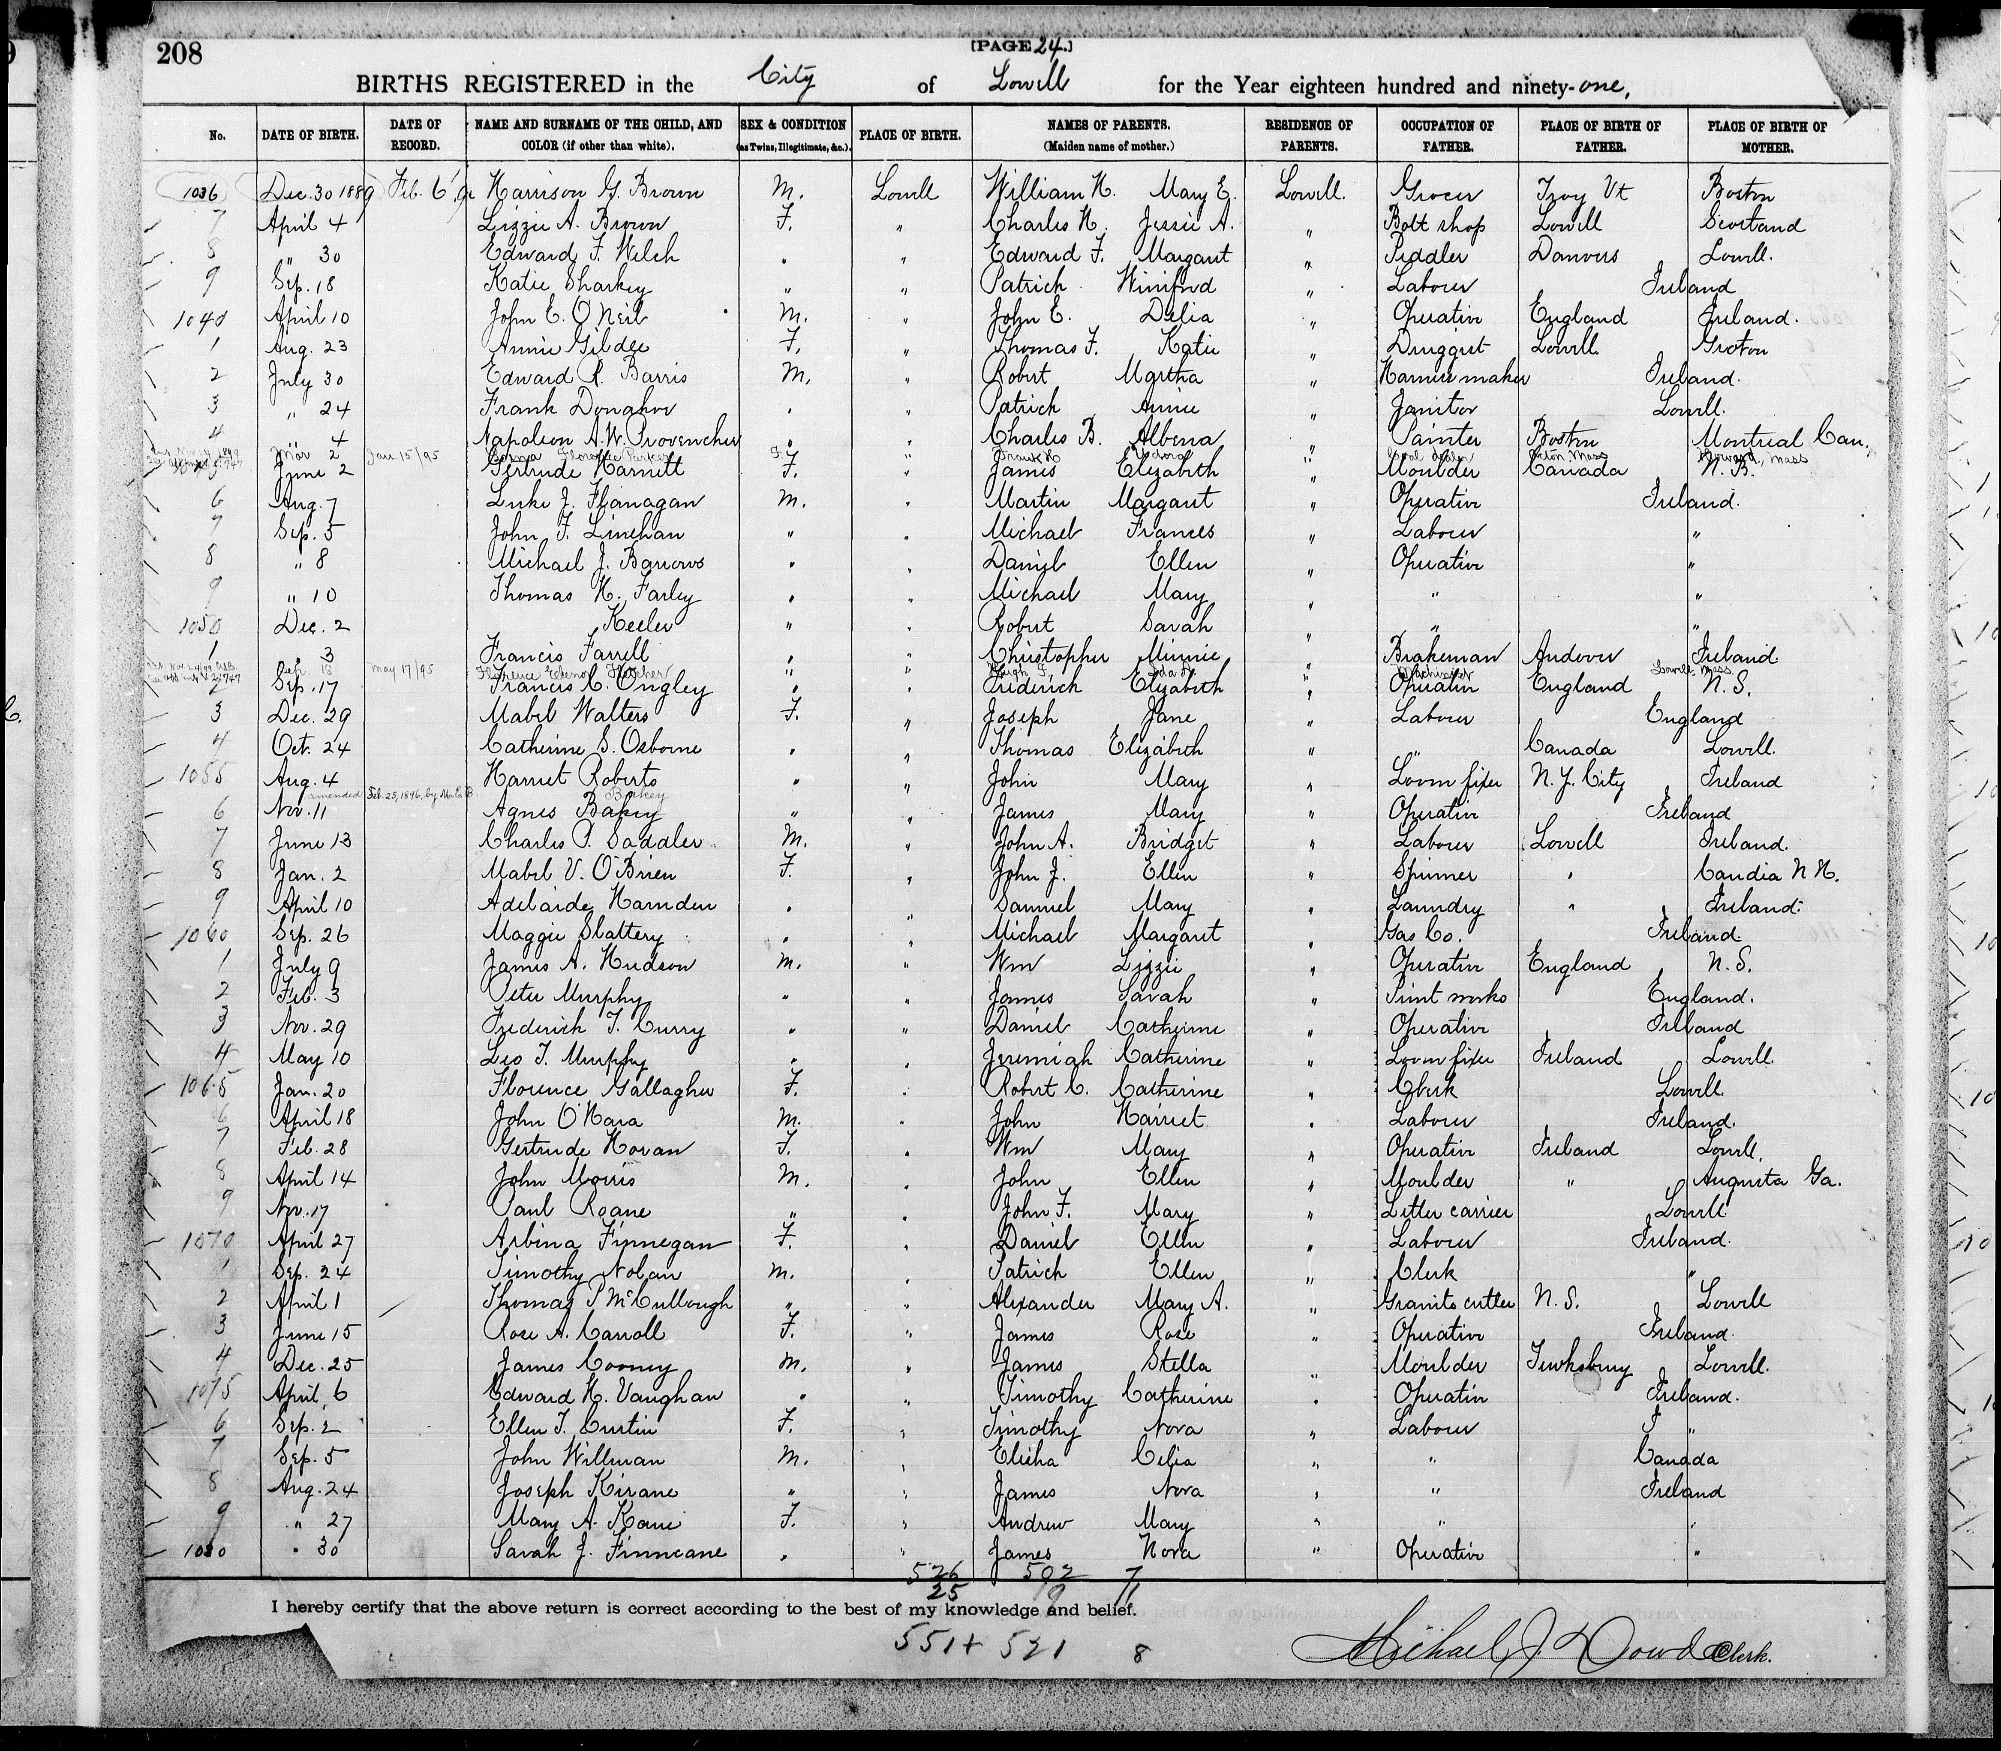 208
[PAGE 24.]
BIRTHS REGISTERED in the City of Lowell for the Year eighteen hundred and ninety-one,
No. DATE OF BIRTH. DATE OF RECORD. NAME AND SURNAME OF THE CHILD, AND COLOR (if other than white). SEX & CONDITION (as Twins, Illegitimate, &c.). PLACE OF BIRTH. NAMES OF PARENTS. (Maiden name of mother.) RESIDENCE OF PARENTS. OCCUPATION OF FATHER. PLACE OF BIRTH OF FATHER. PLACE OF BIRTH OF MOTHER.
1036 Dec. 30 1889 Feb. 6 '91 Harrison G. Brown M. Lowell William H. Mary E. Lowell. Grocer Troy Vt Boston
7 April 4 Lizzie A. Brown F. " Charles H. Jessie A. " Bolt shop Lowell Scotland
8 " 30 Edward F. Welch " " Edward F. Margaret " Peddler Danvers Lowell.
9 Sep. 18 Katie Sharkey " " Patrick Winifred " Laborer Ireland
1040 April 10 John E. O'Neil M. " John E. Delia " Operative England Ireland.
1 Aug. 23 Annie Gildee F. " Thomas F. Katie " Druggist Lowell Groton
2 July 30 Edward R. Barris M. " Robert Martha " Harness maker Ireland.
3 " 24 Frank Donahoe " " Patrick Annie " Janitor Lowell.
4 " 4 Napoleon A. W. Provencher " " Charles B. Albena " Painter Boston Montreal Can.
Mar 2 Jan 15/95 Parker F. " Frank " Mass Mass
5 June 2 Gertrude Harnett F. James Elizabeth Moulder Canada N. B.
6 Aug. 7 Luke J. Flanagan M. " Martin Margaret " Operative Ireland.
7 Sep. 5 John F. Linehan " " Michael Frances " Laborer "
8 " 8 Michael J. Barrows " " Daniel Ellen " Operative "
9 " 10 Thomas H. Farley " " Michael Mary " " "
1050 Dec. 2 Keeler " " Robert Sarah " " "
1 " 3 Francis Farrell " " Christopher Minnie " Brakeman Andover Ireland
Sep 13 May 17/95 Florence Fletcher " " " Machinist Lowell, Mass.
2 Sep. 17 Francis C. Ongley " " Frederick Elizabeth " Operative England N. S.
3 Dec. 29 Mabel Walters F. " Joseph Jane " Laborer England
4 Oct. 24 Catherine S. Osborne " " Thomas Elizabeth " " Canada Lowell.
1055 Aug. 4 Harriet Roberts " " John Mary " Loom fixer N. Y. City Ireland
amended Feb. 25, 1896, by
6 Nov. 11 Agnes " " James Mary " Operative Ireland
7 June 13 Charles P. Saddler M. " John A. Bridget " Laborer Lowell Ireland.
8 Jan. 2 Mabel V. O'Brien F. " John J. Ellen " Spinner " Candia N H.
9 April 10 Adelaide Hamden " " Samuel Mary " Laundry " Ireland.
1060 Sep. 26 Maggie Slattery " " Michael Margaret " Gas Co. Ireland
1 July 9 James A. Hudson M. " Wm Lizzie " Operative England N. S.
2 Feb. 3 Peter Murphy " " James Sarah " Print works England.
3 Nov. 29 Frederick T. Curry " " Daniel Catherine " Operative Ireland
4 May 10 Leo T. Murphy " " Jeremiah Catherine " Loom fixer Ireland Lowell
1065 Jan. 20 Florence Gallagher F. " Robert C. Catherine " Clerk Lowell
6 April 18 John O'Hara M. " John Harriet " Laborer Ireland.
7 Feb. 28 Gertrude Horan F. " Wm Mary " Operative Ireland Lowell.
8 April 14 John Morris M. " John Ellen " Moulder " Augusta Ga.
9 Nov. 17 Paul Roane " " John F. Mary " Letter carrier Lowell
1070 April 27 Albina Finnegan F. " Daniel Ellen " Laborer Ireland.
1 Sep. 24 Timothy Nolan M. " Patrick Ellen " Clerk "
2 April 1 Thomas P McCullough " " Alexander Mary A. " Granite cutter N. S. Lowell
3 June 15 Rose A. Carroll F. " James Rose " Operative Ireland.
4 Dec. 25 James Cooney M. " James Stella " Moulder Tewksbury Lowell.
1075 April 6 Edward H. Vaughan " " Timothy Catherine " Operative Ireland.
6 Sep. 2 Ellen T. Curtin F. " Timothy Nora " Laborer "
7 Sep. 5 John Willman M. " Elisha Celia " " Canada
8 Aug. 24 Joseph Kirane " " James Nora " " Ireland
9 " 27 Mary A. Kane F. " Andrew Mary " " "
1080 " 30 Sarah J. Finneane " " James Nora " Operative "
526 502 7
25 19 11
I hereby certify that the above return is correct according to the best of my knowledge and belief.
551+ 521 8
Michael J Dowd Clerk.